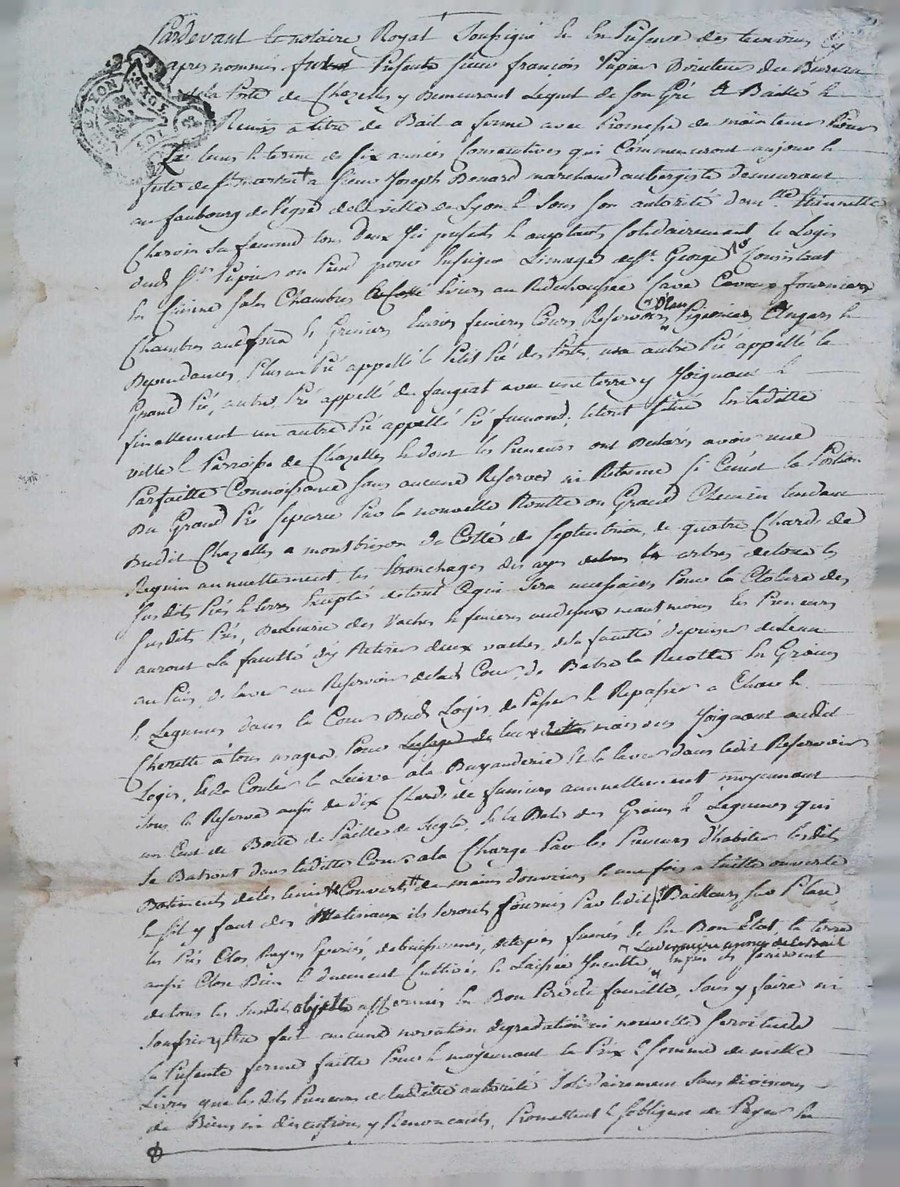 Pardevant le notaire Royal Soussigné Et En Présence des temoins cy
apres nommés furent Présents sieur françois Papier Directeur du Bureau
de la Poste de Chazelles y Demeurant Lequel de son Gré a Baillé Et
Remis a titre de Bail a ferme avec Promesse de maintenir Pour
Le tems Et terme de Six années Consecutives qui Commenceront aujour Et
feste de St martin + a sieur Joseph Benard marchand aubergiste demeurant
au faubourg de de la ville de Lyon Et Sous son autorité a dam.lle
Chervin Sa femme tous deux Icy presents Et acceptants Solidairement Le Logis
dudt Sr Papier ou Pend pour Enseigne Limage de St George Consistant
En Cuisine Sales Chambres Ecuries au Rédechaussée Cave Caveau fourniere
Chambres audessus Et Greniers Ecuries feniers Cours Reservoir Pigeonier Angars Et
Dependances, Plus un Pré appellé le Petit Pré des Portes, un autre Pré appellé le
Grand Pré, autre Pré appellé de faugerat avec une terre y Joignant Et
finallement un autre Pré appellé Pré fumond, Letout Situé En ladite
ville Et Parroisse de Chazelles Et dont les Preneurs ont Déclarés avoir une
Parfaitte Connoissance Sans aucune Reserve ni Retenue Si Cenest la Portion
Du Grand Pré Separée Par la nouvelle Routte ou Grand Chemin tendant
Dudit Chazelles a montbrison du Cotté de Septentrion, de quatre Chards de
Reguin annuellement, les tronchages des ayes arbres detous les
Susdits Prés Et terres Excepté detout Cequi Sera necessaire Pour la Cloture des
Susdits Prés, Delecurie des Vaches Et feniere audessus neantmoins les Preneurs
auront la faculté dy Retirer deux vaches, de la faculté de prendre deleau
au Puis, de laver au Reservoir deladt Cour, de Battre la Recolte En Grains
Et Legumes dans la Cour Dudt Logis, de Passer Et Repasser a Char Et
Cherette à tous usages Pour maisons Joignant audit
Logis, de Couler la Lessive a la Buyanderie Et la laver dans ledit Reservoir
Sous la Reserve aussi de dix Chards de fumiers annuellement moyennant
un Cent de Botte de Paille de Seigle, de la Bale des Grains Et Legumes qui
Se Batront dans laditte Cour a la Charge Par les Preneurs D'habiter lesdits
Batiments de les tenir Couverts de mains douvriers Et une fois a tuille ouverte
Et Sil y faut des Materiaux ils Seront fournis Par ledit Sr Bailleur Sur Place
les Prés Clos, Rayes Epierrés, debuissonnés, Etaupés fumés Et En Bon Etat, la terre
aussi Close Bien Et duement Cultivée Et Laissée Inculte La derniere année de la bail Enfin de Jouir
de tous les Susdits objets affermés En Bon Pere de famille, Sans y faire ni
Souffrir Etre fait aucune novation degradation ni nouvelle Servitude
La Presente ferme faitte Pour Et moyennant le Prix Et Somme de mille
Livres que lesdits Preneurs de laditte autorité Solidairement Sans division
de Biens ni discutions y Renonçants, Promettent Et Sobligent de Payer En